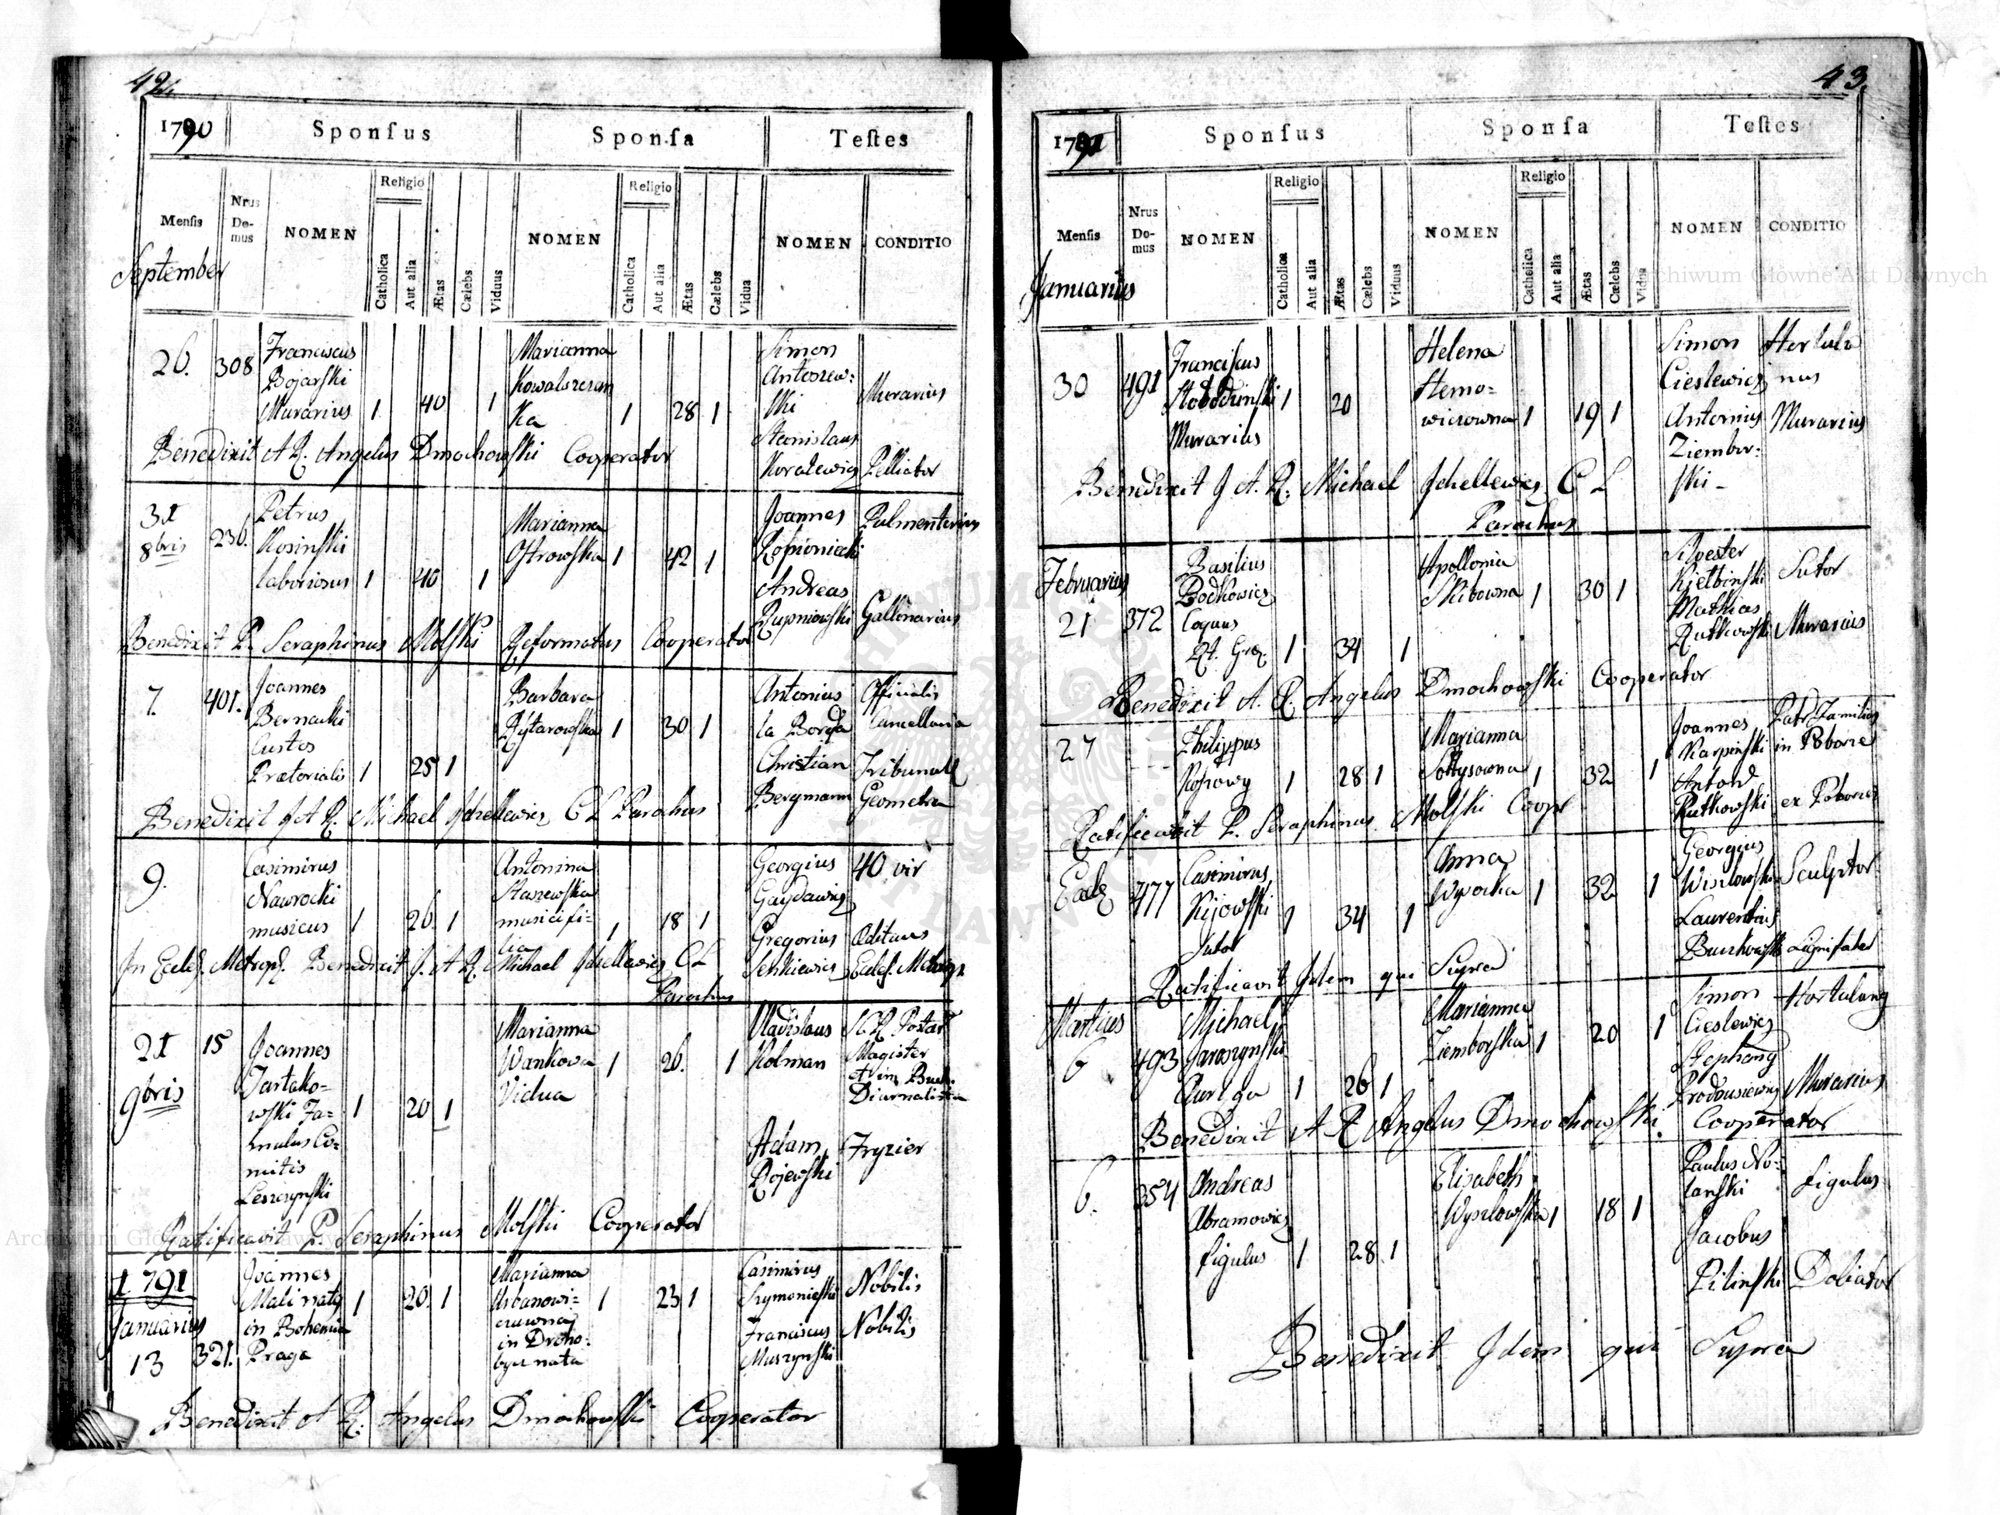 42
1790
Sponsus
Sponsa
Testes
Mensis
Nrus Do-mus
NOMEN
Religio
Catholica
Aut alia
Ætas
Cælebs
Viduus
NOMEN
Religio
Catholica
Aut alia
Ætas
Cælebs
Vidua
NOMEN
CONDITIO
September
26. 308 Franciscus Marianna Simon
Bojarski Kowalszczan Antoszew:
Murarius 1 40 1 ka 1 28 1 ski Murarius
Stanislaus
Benedixit A R. Angelus Dmochowski Cooperator
Koralewicz Pelliator
31 Petrus Marianna Joannes Pulmentarius
8bris 236. Kosinski Ostrowska 1 42 1
laboriosus 1 40 1 Andreas
Rupniowski Gallinarius
Benedixit P. Seraphinus Molski Reformatus Cooperator
7. 401. Joannes Barbara Antonius Officialis
Bernacki 1 30 1 la Cancellaria
Custos Christian Tribunall
Prætorialis 1 25 1 Bergmann Geometra
Benedixit J A R. Michael Jchellewicz C L Parochus
9. Casimirus Antonina Georgius 40 vir
Nawrocki Staszewska Gaydawicz
musicus 1 26 1 musici fi- 1 18 1 Gregorius Æditaus
lia Senkiewicz Eccles. Metrop.
In Eccles. Metrop. Benedixit J. A R. Michael Jchellewicz C L
Parochus
21 15 Joannes Marianna Vladislaus
9bris Jastako- Wankowa 1 26. 1 Kolman Magister
wski Fa- 1 20 1 Vidua Diurnalista
mulus Co- Adam Fryzier
mitis Rojewski
Leszczynski
Ratificavit P. Seraphinus Molski Cooperator
1791 Joannes Marianna Casimirus Nobilis
Mali naty 1 20 1 Urbanowi- 1 23 1 Szymonieski
Januarius in Bohemia czuwna Franciscus Nobilis
13 321. Praga in Droho- Muszynski
bycz nata
Benedixit A R. Angelus Dmochowski Cooperator
43
1791
Sponsus
Sponsa
Testes
Mensis
Nrus Do-mus
NOMEN
Religio
Catholica
Aut alia
Ætas
Cælebs
Viduus
NOMEN
Religio
Catholica
Aut alia
Ætas
Cælebs
Vidua
NOMEN
CONDITIO
Januarius
30 491 Franciscus Helena Simon Hortula
Slobodzinski 1 20 Stemo= Cieslewicz nus
Murarius wiczowna 1 19 1 Antonius Murarius
Ziember:
ski -
Benedixit J A. R. Michael Jchellewicz C L
Parochus
Februarius Basilius Apollonia Silvester
21 372 Bodkowicz Skibowna 1 30 1 Kielbinski Sutor
Coquus Mathias
Rt. Græ. 1 34 1 Rutkowski Murarius
Benedixit A. R. Angelus Dmochowski Cooperator
27 Philippus Marianna Joannes Patr Familias
Kosowy 1 28 1 Soltysowna 1 32 1 Karpinski in Poborze
Anton Rutkowski ex Poborze
Ratificavit P. Seraphinus Molski Coopr
477 Casimirus Anna Georgius
Kijowski 1 34 1 Wysocka 1 32 1 Wiszlowski Sculptor
Sutor Laurentius
Lignifaber
Ratificavit Idem qui Supra
Martius Michael Marianna Simon Hortulang
6 493 Jaroszynski Ziemborska 1 20 1 Cieslewicz
Auriga 1 26 1 Stephang
Murarius
Benedixit A R Angelus Dmochowski Cooperator
6. 354 Andreas Elisabeth Paulus No:
Abramowicz Wyszlowska 1 18 1 lanski Figulus
figulus 1 28 1 Jacobus
Pilinski Doliator
Benedixit Idem qui Supra
Archiwum Główne Akt Dawnych
Archiwum Główne Akt Dawnych